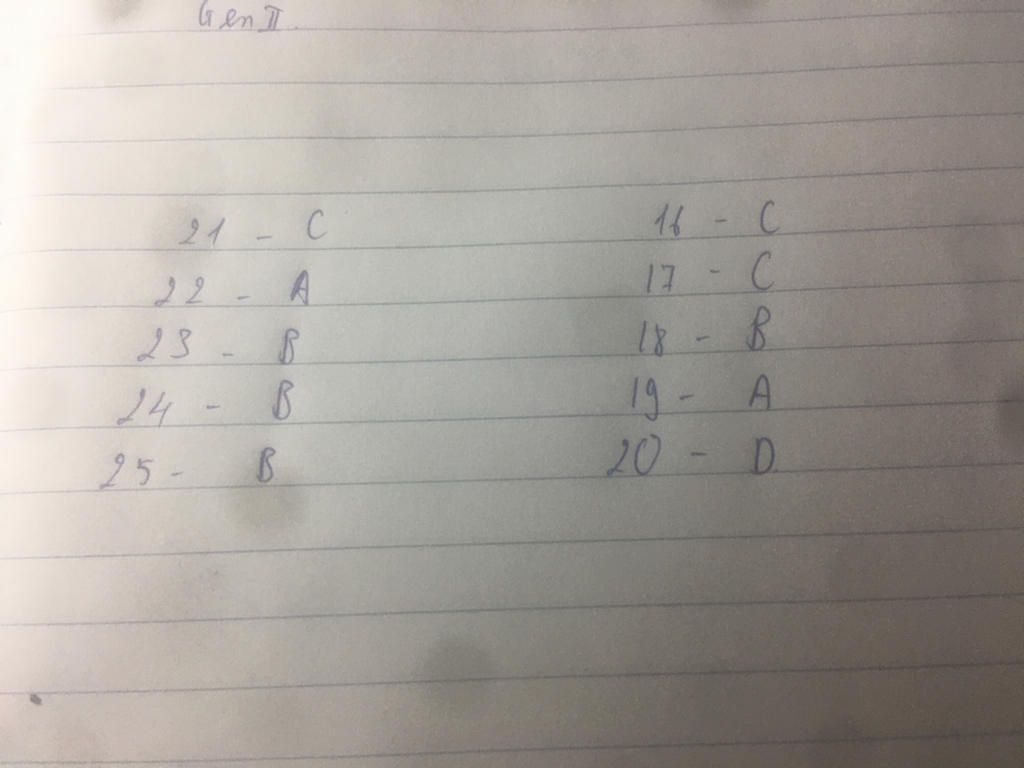 Gen II.
21 - C
22 - A
23 - B
24 - B
25 - B
16 - C
17 - C
18 - B
19 - A
20 - D